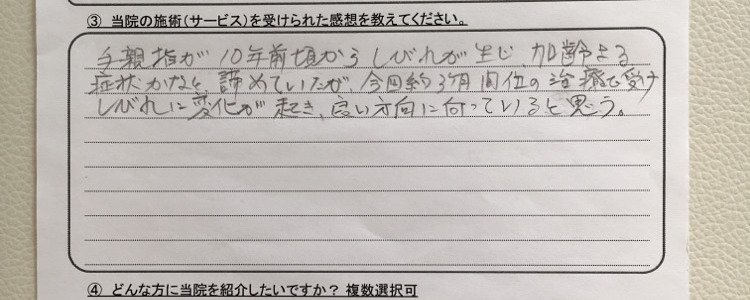 ③ 当院の施術(サービス)を受けられた感想を教えてください。
手親指が10年前頃からしびれが生じ、加齢よる
症状かなと、諦めていたが、今回約3ヶ月間位の治療で受け
しびれに変化が起き、良い方向に向っていると思う。
④ どんな方に当院を紹介したいですか? 複数選択可